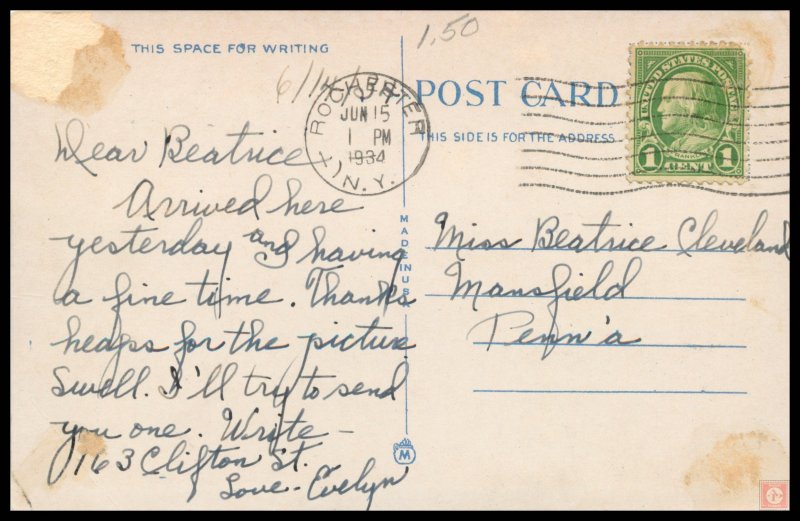 1.50
THIS SPACE FOR WRITING
6/14/
ROCHESTER
JUN 15
1 PM
1934
N.Y.
POST CARD
THIS SIDE IS FOR THE ADDRESS
UNITED STATES POSTAGE
FRANKLIN
1 CENT 1
Dear Beatrice
Arrived here
yesterday and having
a fine time. Thanks
heaps for the picture
Swell. I'll try to send
you one. Write –
163 Clifton St.
Love - Evelyn
MADE IN USA
M
Miss Beatrice Cleveland
Mansfield
Penn'a